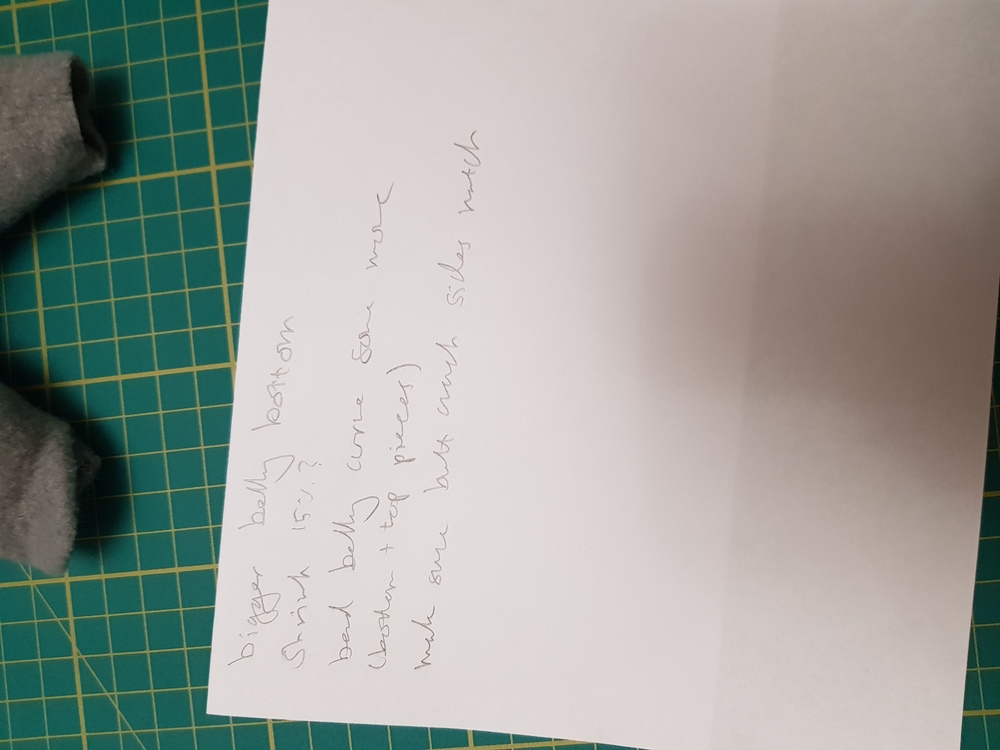 bigger belly bottom
Shrink 15%?
bend belly curve some more
(bottom + top pieces)
make sure butt crack sides match